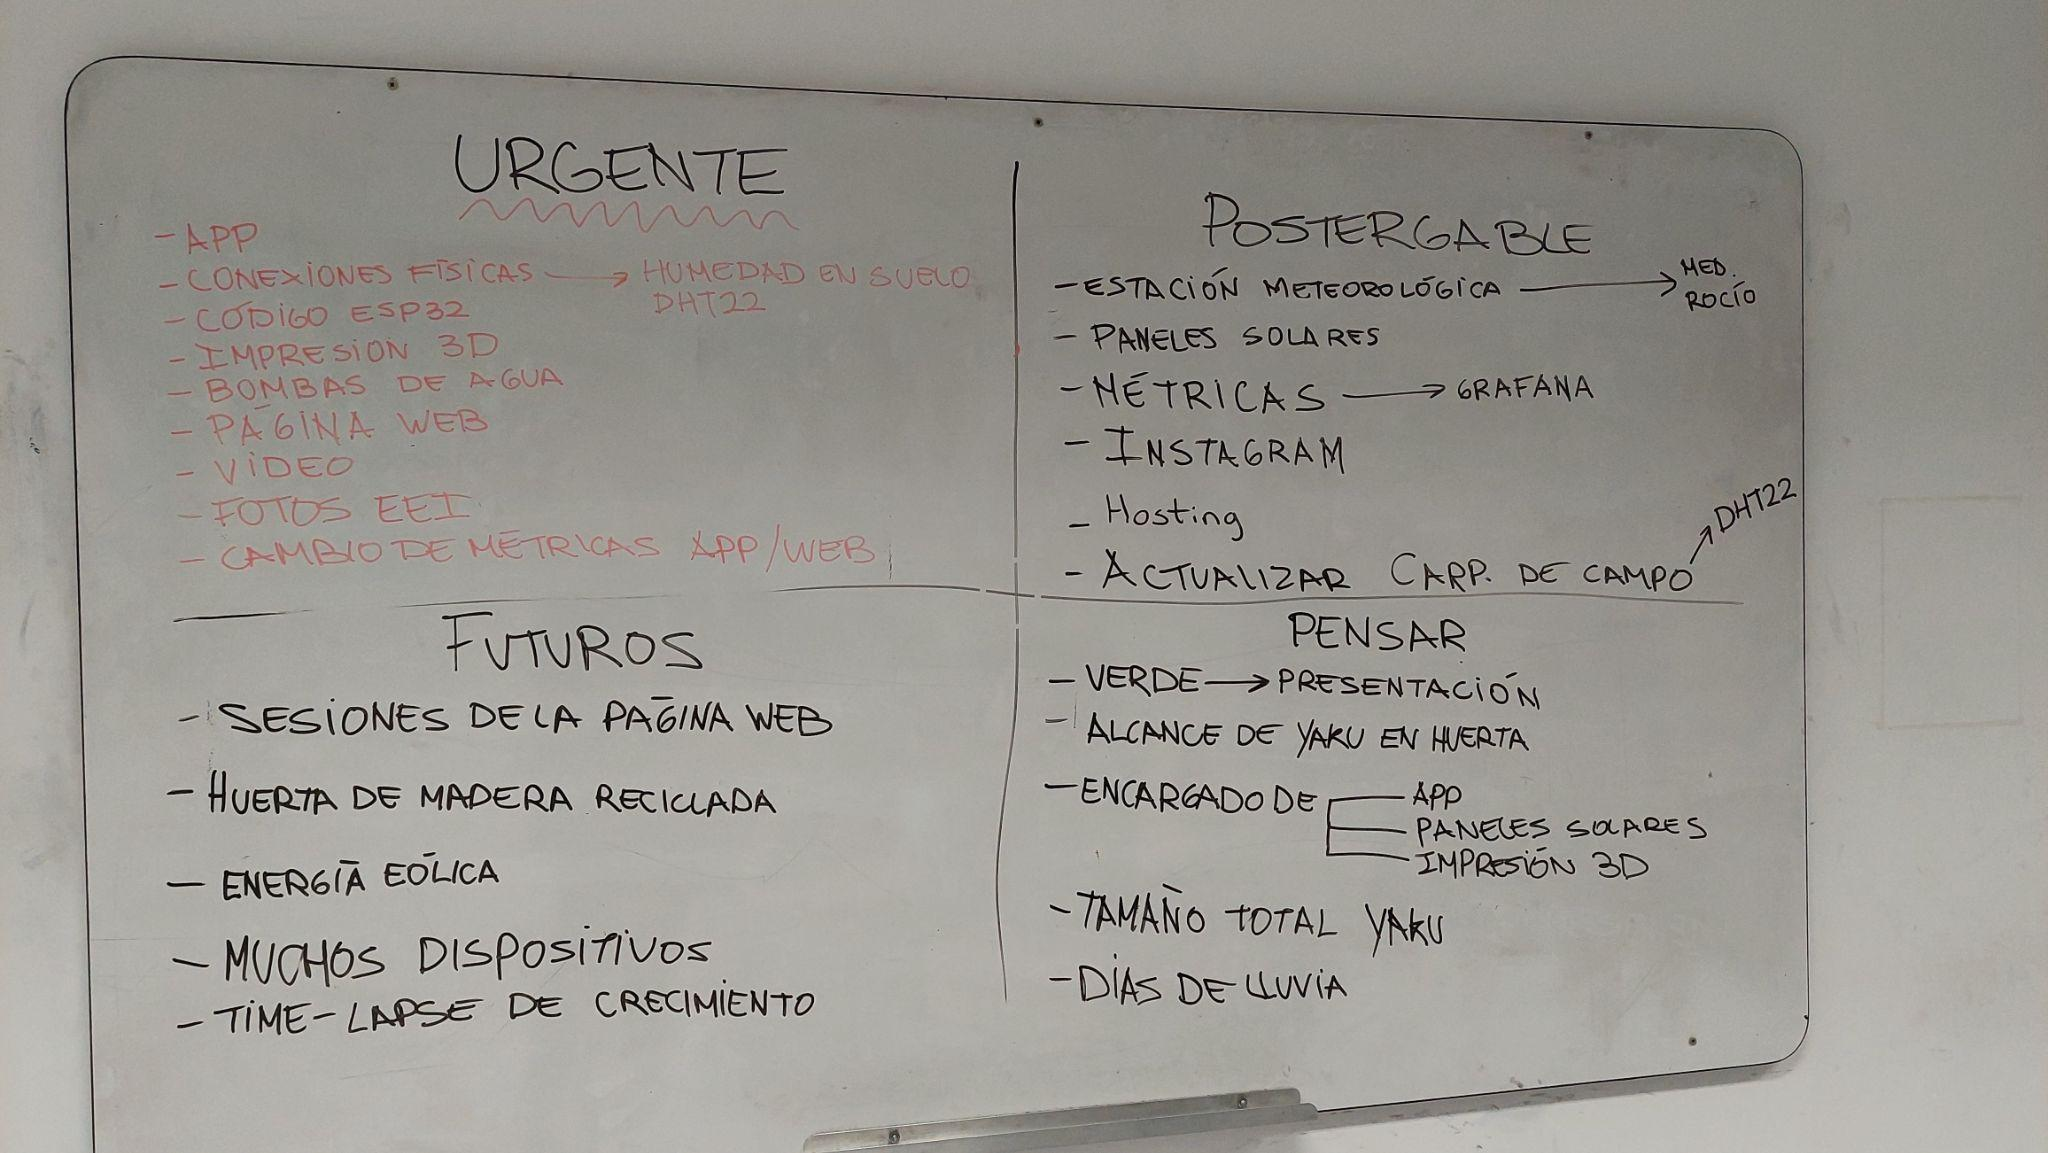 URGENTE
- APP
- CONEXIONES FÍSICAS → HUMEDAD EN SUELO
DHT22
- CÓDIGO ESP32
- IMPRESIÓN 3D
- BOMBAS DE AGUA
- PÁGINA WEB
- VIDEO
- FOTOS EEI
- CAMBIO DE MÉTRICAS APP/WEB
POSTERGABLE
- ESTACIÓN METEOROLÓGICA → MED.
ROCÍO
- PANELES SOLARES
- MÉTRICAS → GRAFANA
- INSTAGRAM
- Hosting
- ACTUALIZAR CARP. DE CAMPO → DHT22
FUTUROS
- SESIONES DE LA PÁGINA WEB
- HUERTA DE MADERA RECICLADA
- ENERGÍA EÓLICA
- MUCHOS DISPOSITIVOS
- TIME-LAPSE DE CRECIMIENTO
PENSAR
- VERDE → PRESENTACIÓN
- ALCANCE DE YAKU EN HUERTA
- ENCARGADO DE APP
PANELES SOLARES
IMPRESIÓN 3D
- TAMAÑO TOTAL YAKU
- DÍAS DE LLUVIA